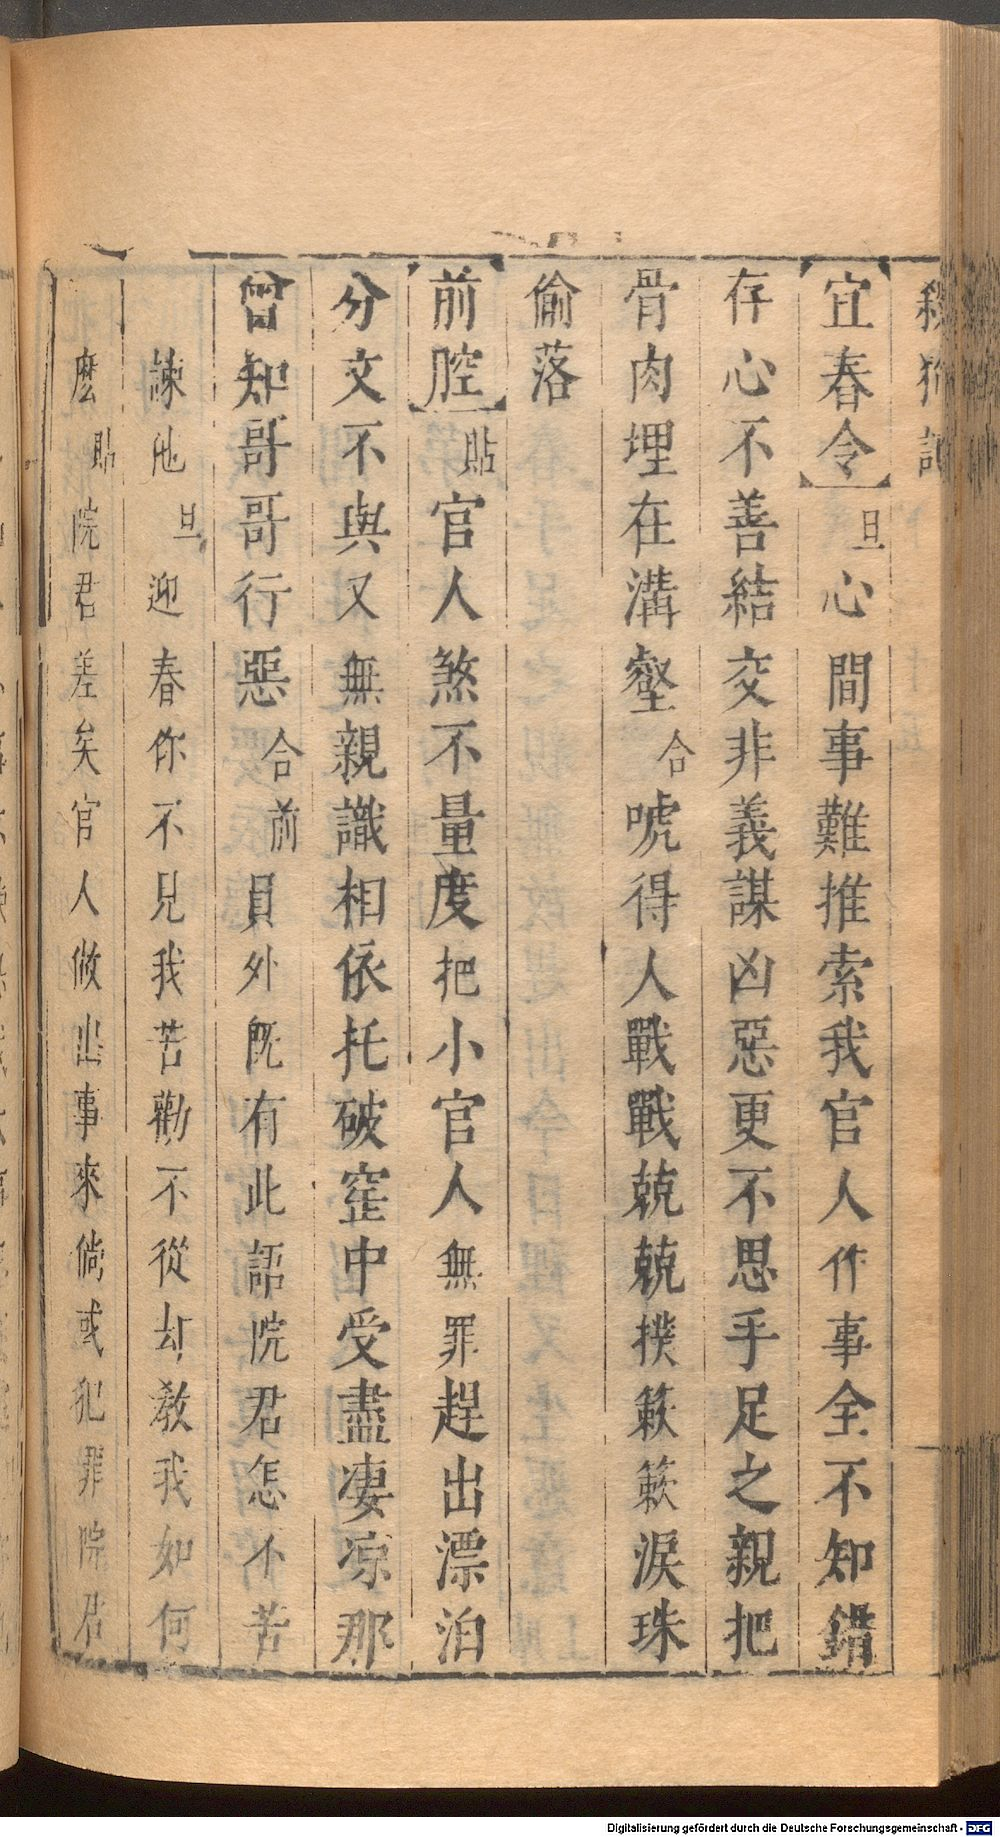 殺狗記
【宜春令】旦心間事難推索我官人作事全不知錯
存心不善結交非義謀凶惡更不思手足之親把
骨肉埋在溝壑合唬得人戰戰兢兢撲簌簌淚珠
偷落
【前腔】貼官人煞不量度把小官人無罪趕出漂泊
分文不與又無親識相依托破窰中受盡凄凉那
曾知哥哥行惡合前員外旣有此語院君怎不苦
諫他旦迎春你不見我苦勸不從却教我如何
麽貼院君差矣官人做出事來倘或犯罪院君
Digitalisierung gefördert durch die Deutsche Forschungsgemeinschaft - DFG